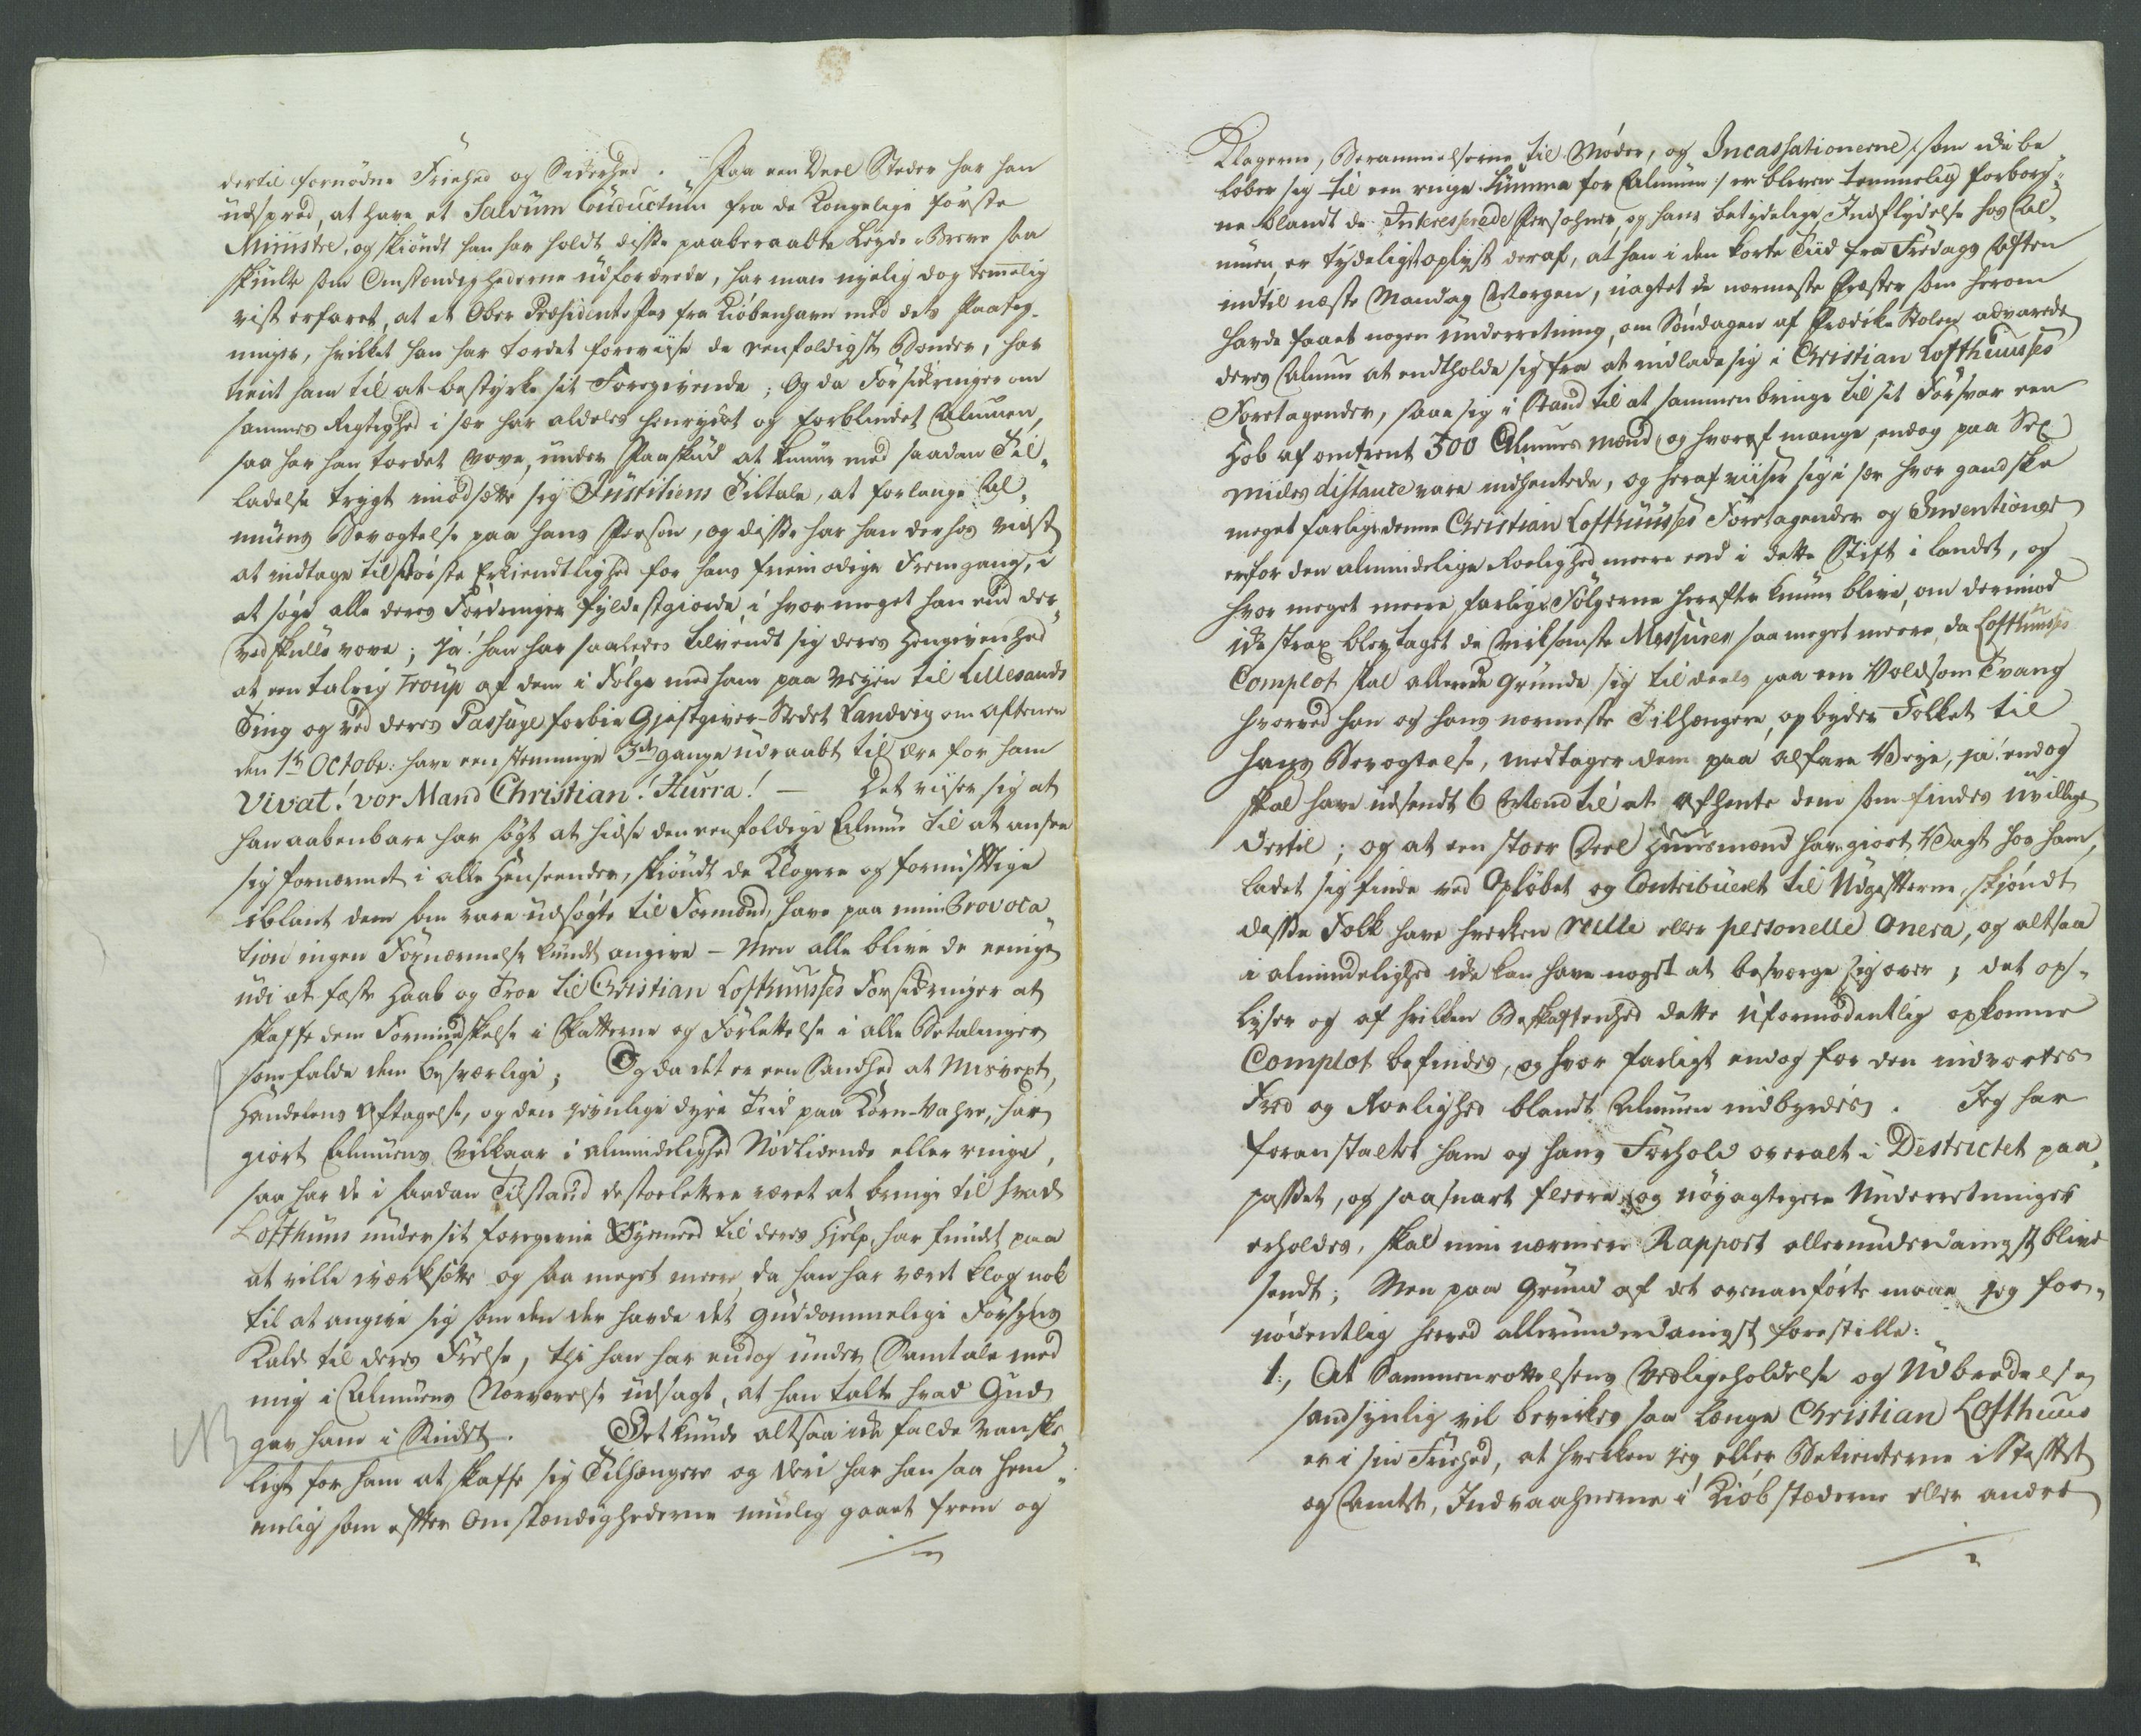 dertil fornødne Friehed og Sikkerhed. Paa een Deel Steder har han
udspred, at have et Salvum Conductum fra de Kongelige første
Ministre, og skiøndt han har holdt disse paaberaabte Leyde-Breve saa
skiulte som Omstændighederne udfordrede, har man nyelig dog temelig
vist erfaret, at et Ober Præsidents Pas fra Kiøbenhavn med dets Paateg-
ninger, hvilket han har tordet foreviise de eenfoldigste Bønder, har
tient ham til at bestyrke sit Foregivende; Og da Forsikringer om
sammes Rigtighed i sær har aldeles henrykt og forblindet Almuen,
saa har han tordet vove, under Paaskud at kunne med saadan Til-
ladelse trygt imodsætte sig Justitiens Tiltale, at forlange Al-
muens Bevogtelse paa hans Person, og disse har han derhos vidst
at indtage til største Erkiendtlighed for hans friemodige Fremgang, i
at søge alle deres Fordringer fyldestgiorde, i hvor meget han end der-
ved skulle vove; Ja! han har saaledes tilvendt sig deres Hengivenhed
at een talrig Troup af dem i Følge med ham paa Veyen til Lillesands
Ting og ved deres Passage forbie Gjæstgiver-Stedet Landvig om aftenen
den 1te Octobr: have eenstemmige 3de gange udraabt til ære for ham
Vivat! vor Mand Christian! Hurra! — Det viiser sig at
han aabenbare har søgt at hidse den eenfoldige Almue til at ansee
sig fornærmet i alle Henseender, skiøndt de Klogere og fornuftige
iblant dem som vare udsøgte til Formænd, have paa min Provoca-
tion ingen Fornærmelse kundt angive – Men alle blive de eenige
udi at fæste Haab og Troe til Christian Lofthuuses Forsikringer at
skaffe dem Formindskelse i Skatterne og Forlettelse i alle Betalinger
som falde dem besværlige; Og da det er een Sandhed at Misvext,
Handelens Aftagelse, og den jævnlige dyre Tiid paa Korn-Vahre, har
giort Almuens Vilkaar i almindelighed Nødlidende eller ringe,
saa har de i saadan Tilstand desto lettere været at bringe til hvad
Lofthuus under sit foregivne Øyemeed til deres Hjelp, har fundt paa
at ville iværksætte og saa meget meere, da han har været klog nok
til at angive sig som den der havde det guddommelige Forsyns
Kald til deres Frelse, thi han har endog under Samtale med
mig i Almuens Nærværelse udsagt, at han talte hvad Gud
NB gav ham i Sindet. Det kunde altsaa ikke falde vanske-
ligt for ham at skaffe sig Tilhængere og deri har han saa hem-
melig som efter Omstændighederne muelig gaaet frem og
Klagerne, Berammelserne til Møder, og Incassationerne /: som ikke be
løber sig til een ringe Summa for Almuen :/ er bleven temmelig forborg-
ne blandt de Interesserede Personer, og hans betydelige Indflydelse hos Al-
muen, er tydeligst oplyst deraf, at han i den korte Tiid fra Fredags Aften
indtil næste Mandag Morgen, uagtet de nærmeste Præster som herom
havde faaet nogen Underretning, om Søndagen af Prædike Stolen advarede
deres Almue at endtholde sig fra at indlade sig i Christian Lofthuuses
Foretagender, saae sig i Stand til at sammenbringe til sit Forsvar een
Hob af omtrent 300 Almues Mænd, og hvoraf mange, endog paa Sex
Miiles distance vare indhentede, og heraf viiser sig i sær hvor gandske
meget farlige denne Christian Lofthuuses Foretagender og Inventioner
er for den almindelige Roelighed meere end i dette Stift i landet, og
hvor meget meere farlige Følgerne herefter kunne blive, om derimod
ikke strax blev taget de virksomste Messures, saa meget meere, da Lofthuuses
Complot skal allerede grunde sig til deels paa een Voldsom Tvang
hvorved han og hans nærmeste Tilhængere, opbyder Folket til
hans Bevogtelse, medtager dem paa alfare Veye, ja! endog
skal have udsendt 6 Mænd til at afhente dem som findes uvillige
dertil; og at een stoer Deel Huusmænd har giort Vagt hos ham,
ladet sig finde ved Opløbet og Contribueret til Udgifterne, skjøndt
disse Folk have hverken reelle eller personelle Onera, og altsaa
i almindelighed ikke kan have noget at besværge sig over; det op-
lyser og af hvilken Beskaffenhed dette uformodentlig opkomne
Complot befindes, og hvor farligt endog for den indvortes
Fred og Roelighed blandt Almuen indbyrdes. Jeg har
foranstaltet ham og hans Forhold overalt i Destrictet paa-
passet, og saasnart fleere og nøyagtigere Underretninger
erholdes, skal min nærmere Rapport allerunderdanigst blive
sendt; Men paa Grund af det ovenanførte maae jeg for-
nødentlig herved allerunderdanigst forestille:
1., At Sammenrottelsens Vedligeholdelse og Udbredelse
sandsynlig vil bevirkes saa længe Christian Lofthuus
er i sin Friehed, at hverken jeg eller Betienterne i Stiftet
og Amtet, Indvaanerne i Kiøbstæderne eller andre